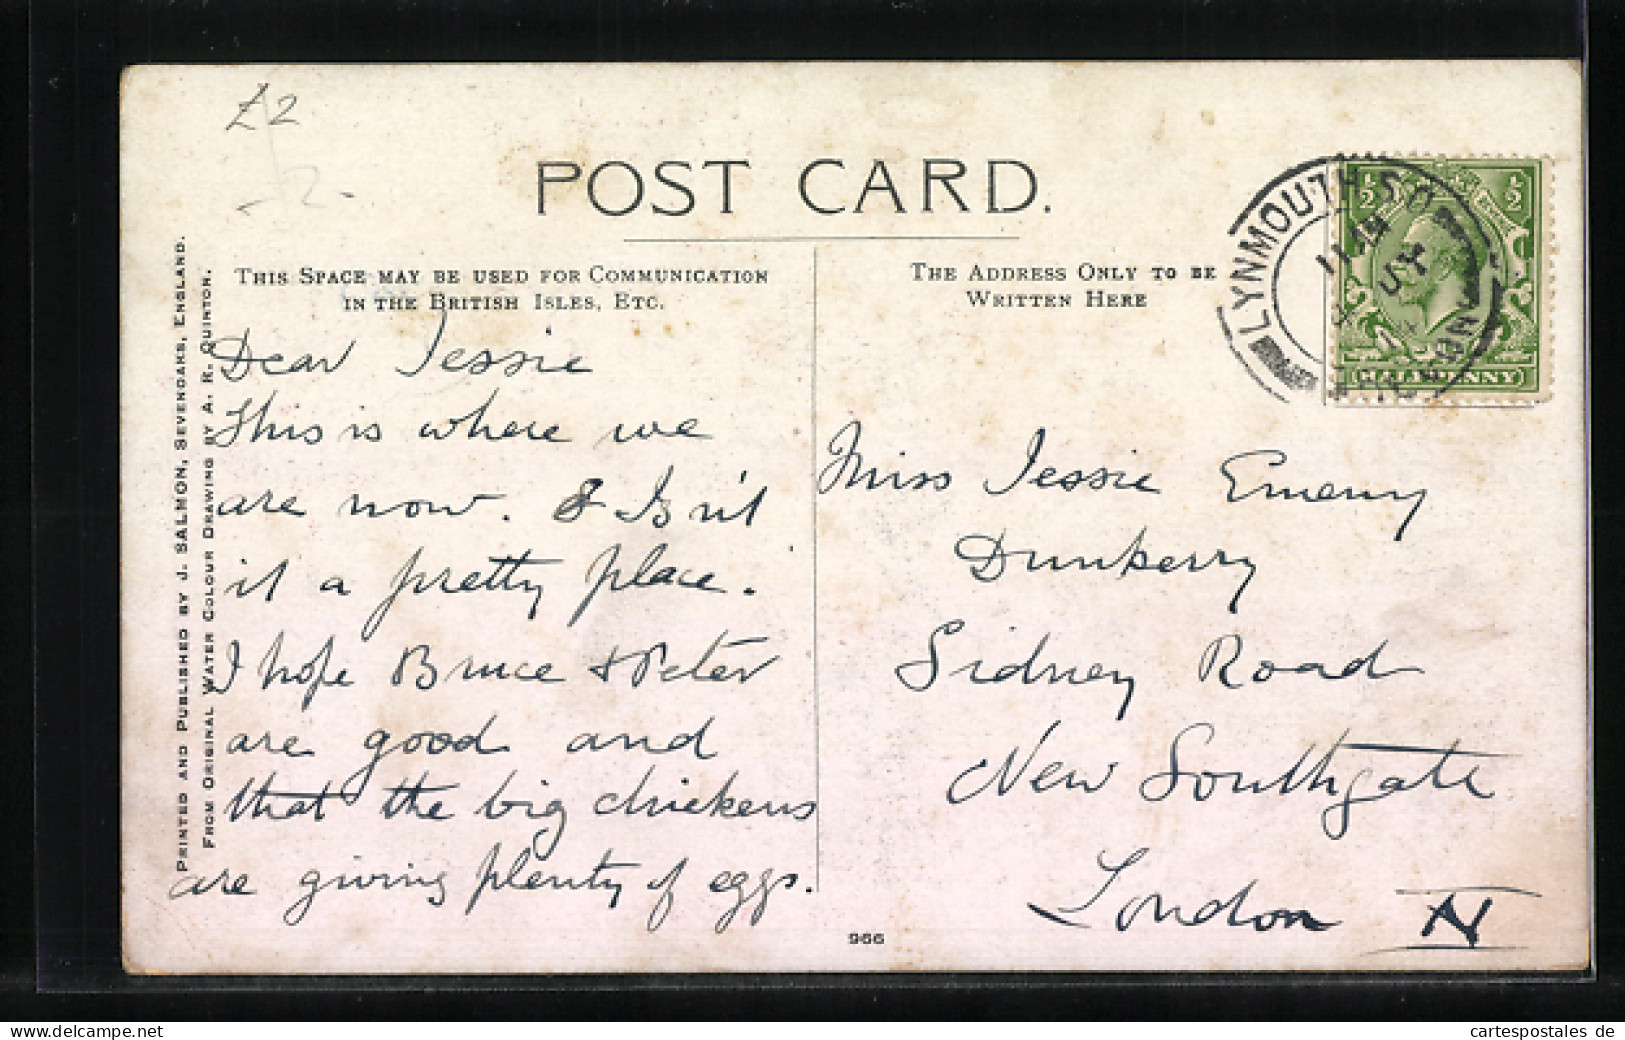 £2
2.
POST CARD.
THIS SPACE MAY BE USED FOR COMMUNICATION
IN THE BRITISH ISLES, ETC.
THE ADDRESS ONLY TO BE
WRITTEN HERE
PRINTED AND PUBLISHED BY J. SALMON, SEVENOAKS, ENGLAND.
FROM ORIGINAL WATER COLOUR DRAWING BY A. R. QUINTON.
Dear Jessie
This is where we
are now. & Isn't
it a pretty place.
I hope Bruce & Peter
are good and
that the big chickens
are giving plenty of eggs.
LYNMOUTH S.O
½ ½
HALFPENNY
Miss Jessie Emeny
Dunkerry
Sidney Road
New Southgate
London N
966
cartespostales de